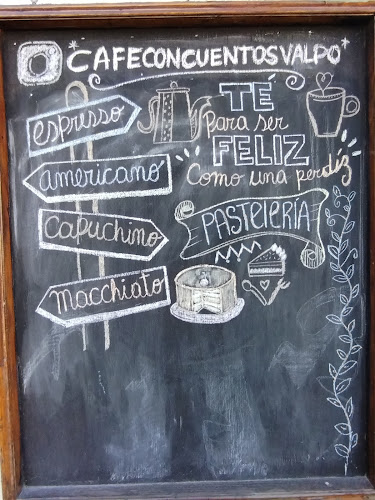 *CAFECONCUENTOSVALPO*
espresso
americano
Capuchino
macchiato
TÉ
para ser
FELIZ
Como una perdíz
PASTELERÍA